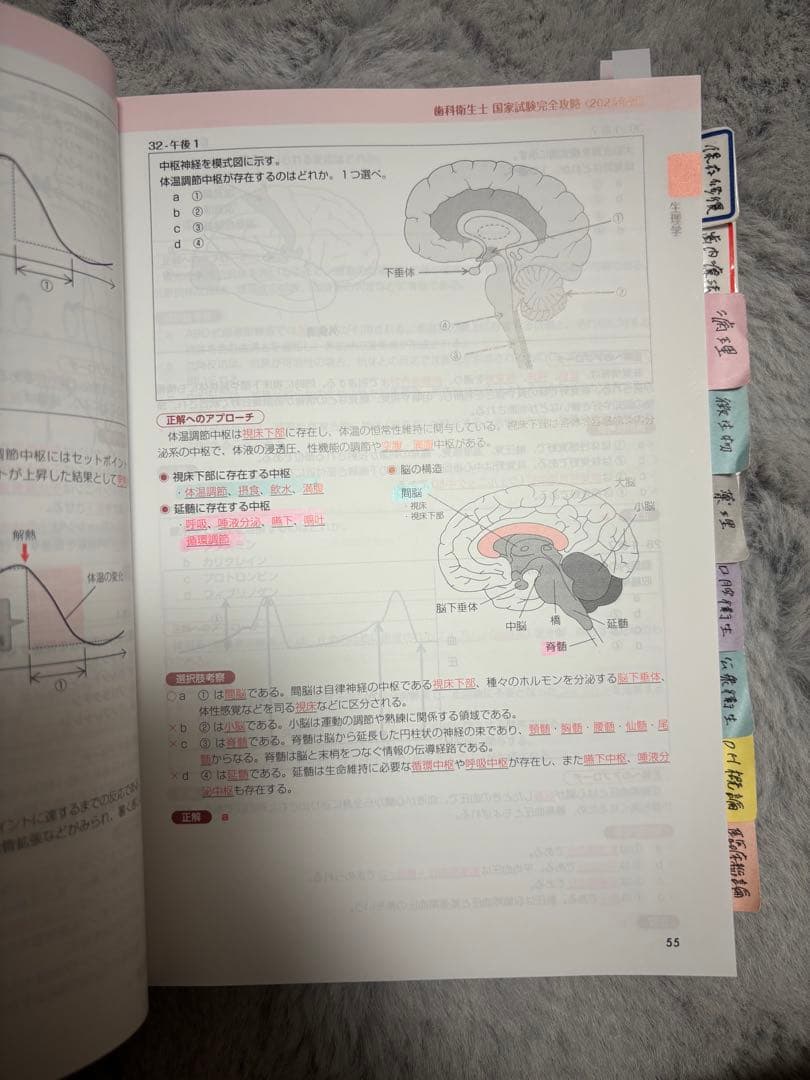 歯科衛生士 国家試験完全攻略
32-午後1
中枢神経を模式図に示す。
体温調節中枢が存在するのはどれか。1つ選べ。
a ①
b ②
c ③
d ④
①
下垂体
②
④
③
正解へのアプローチ
体温調節中枢は視床下部に存在し、体温の恒常性維持に関与している。視床下部は
泌系の中枢で、体液の浸透圧、性機能の調節や空腹、満腹中枢がある。
視床下部に存在する中枢
・体温調節、摂食、飲水、満腹
延髄に存在する中枢
・呼吸、唾液分泌、嚥下、嘔吐
循環調節
脳の構造
間脳
・視床
・視床下部
大脳
小脳
脳下垂体
中脳
橋
延髄
脊髄
選択肢考察
○a ①は間脳である。間脳は自律神経の中枢である視床下部、種々のホルモンを分泌する脳下垂体、
体性感覚などを司る視床などに区分される。
×b ②は小脳である。小脳は運動の調節や熟練に関係する領域である。
×c ③は脊髄である。脊髄は脳から延長した円柱状の神経の束であり、頸髄・胸髄・腰髄・仙髄・尾
髄からなる。脊髄は脳と末梢をつなぐ情報の伝導経路である。
×d ④は延髄である。延髄は生命維持に必要な循環中枢や呼吸中枢が存在し、また嚥下中枢、唾液分
泌中枢も存在する。
正解 a
55
生理学
保存修復
歯内療法
病理
微生物
薬理
口腔衛生
公衆衛生
DH概論
①
調節中枢にはセットポイン
トが上昇した結果として
解熱
体温の変化
①
イントに達するまでの反応であ